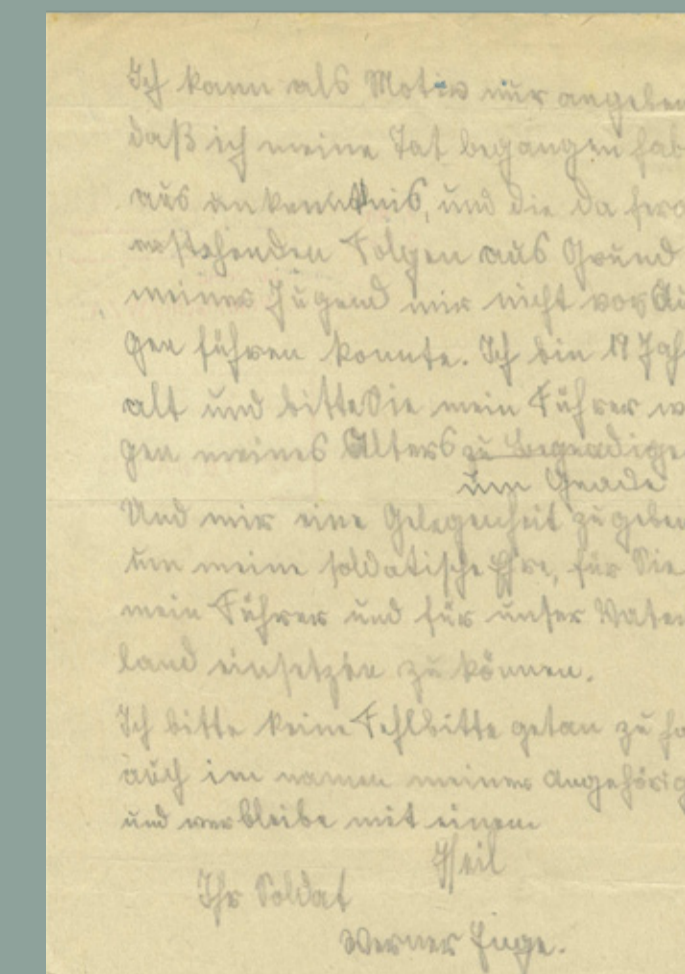 Ich kann als Motiv nur angeben
daß ich meine Tat begangen hab
aus unkenntnis, und die da hera
enstehenden Folgen aus Grund
meiner Jugend mir nicht vor Au
gen führen konnte. Ich bin 19 Jah
alt und bitte Sie mein Führer we
gen meines Alters zu Begnadige
um Gnade
Und mir eine Gelegenheit zu geben
um meine soldatische Ehre, für Sie
mein Führer und für unser Vater
land einsetzen zu können.
Ich bitte keine Fehlbitte getan zu ha
auch im namen meiner Angehörig
und verbleibe mit einem
Heil
Ihr Soldat
Werner